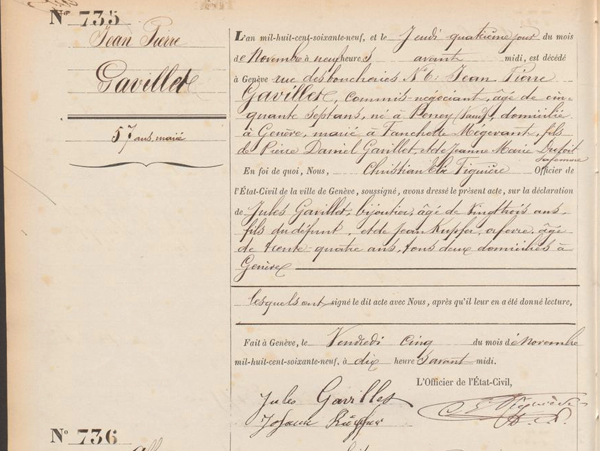 N° 735
Jean Pierre
Gavillet
57 ans, marié
L'an mil-huit-cent-soixante-neuf, et le Jeudi quatrième jour du mois
de Novembre à neuf heures avant midi, est décédé
à Genève rue des boucheries N° 6: Jean Pierre
Gavillet, commis négociant, âgé de cin-
quante sept ans, né à Peney (Vaud), domicilié
à Genève, marié à Fanchette Mégevant, fils
de Pierre Daniel Gavillet, et de Jeanne Marie
En foi de quoi, Nous, Christian Elie Figuière Officier de
l'État-Civil de la ville de Genève, soussigné, avons dressé le présent acte, sur la déclaration
de Jules Gavillet, bijoutier, âgé de vingt trois ans
fils du défunt, et de Jean Kupfer, orfèvre, âgé
de trente-quatre ans, tous deux domiciliés à
Genève
lesquels ont signé le dit acte avec Nous, après qu'il leur en a été donné lecture.
Fait à Genève, le Vendredi cinq du mois de Novembre
mil-huit-cent-soixante-neuf, à dix heures avant midi.
L'Officier de l'État-Civil,
Jules Gavillet
N° 736